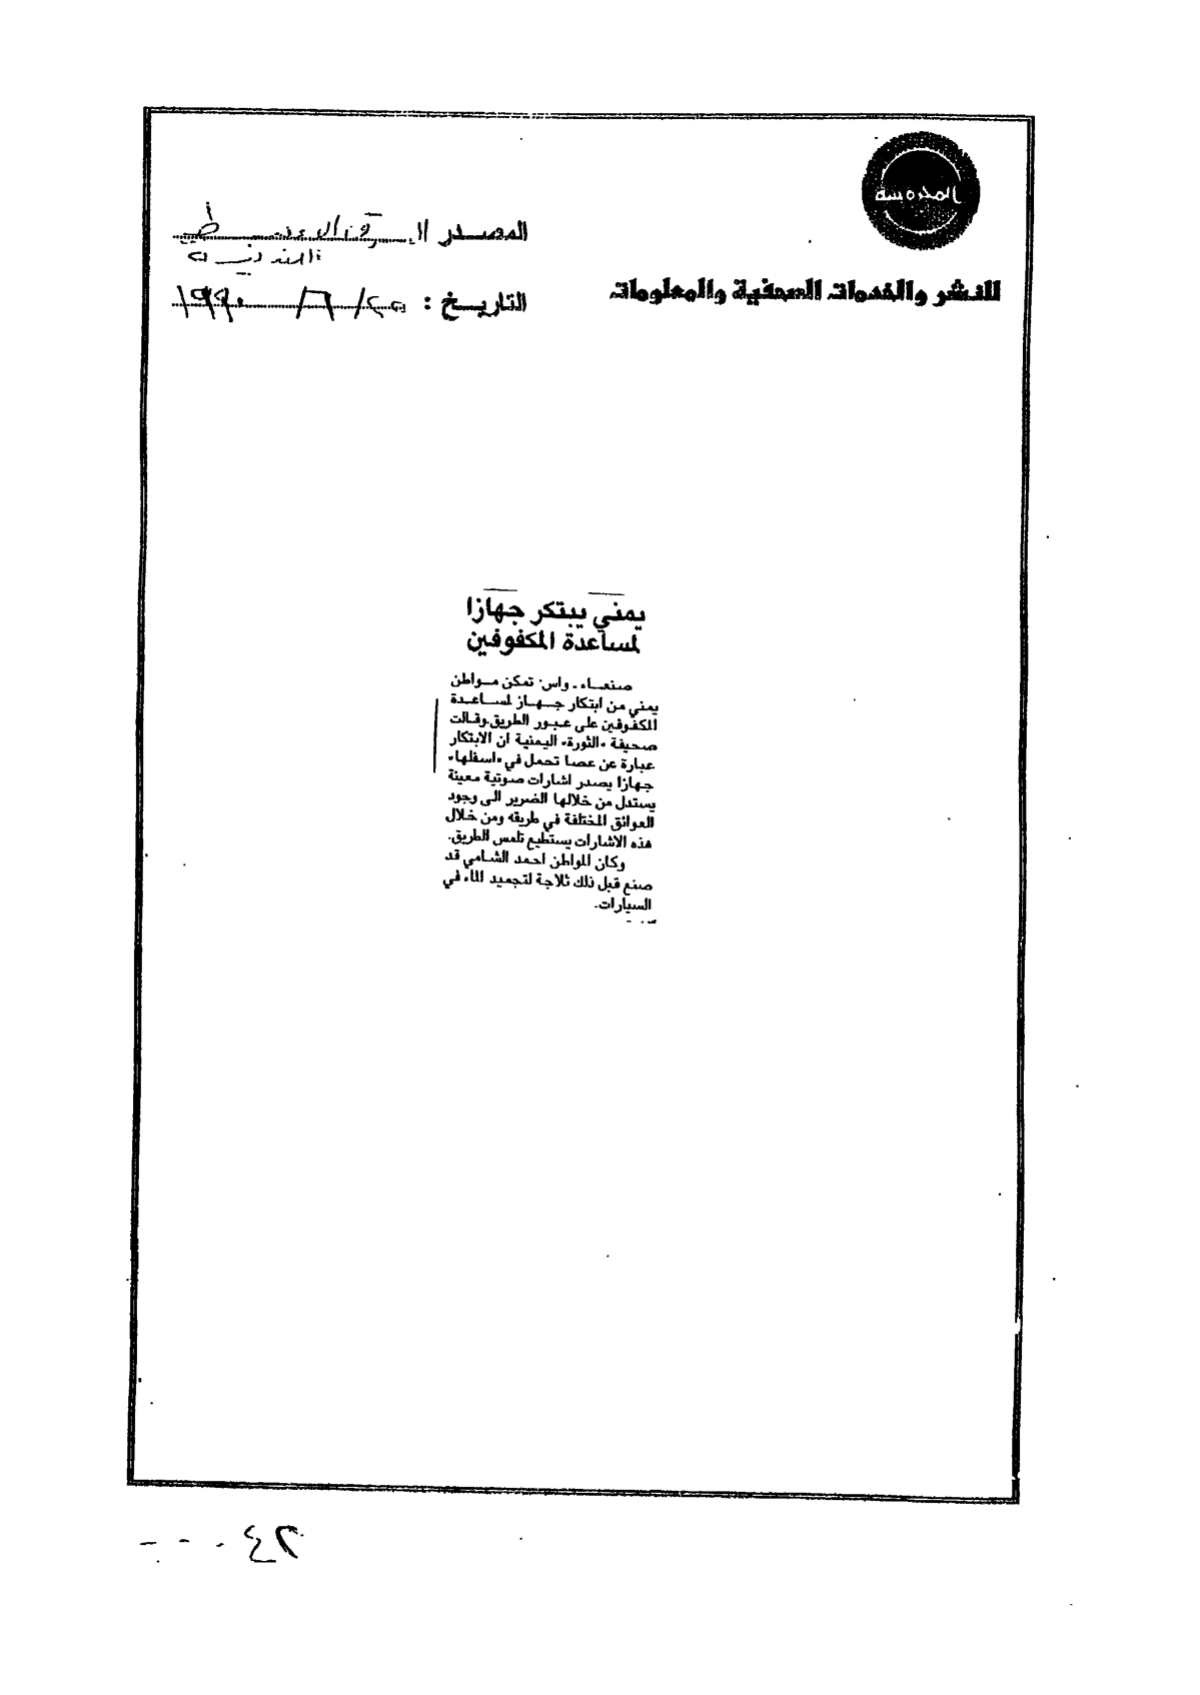 المحروسة
للنشر والخدمات الصحفية والمعلومات
المصدر الشرق الأوسط
اللندنية
التاريخ : /٦/ ١٩٩٠
يمني يبتكر جهازا
لمساعدة المكفوفين
صنعاء ـ واس: تمكن مواطن
يمني من ابتكار جهاز لمساعدة
المكفوفين على عبور الطريق.وقالت
صحيفة «الثورة» اليمنية ان الابتكار
عبارة عن عصا تحمل في «اسفلها»
جهازا يصدر اشارات صوتية معينة
يستدل من خلالها الضرير الى وجود
العوائق المختلفة في طريقه ومن خلال
هذه الاشارات يستطيع تلمس الطريق.
وكان المواطن احمد الشامي قد
صنع قبل ذلك ثلاجة لتجميد الماء في
السيارات.